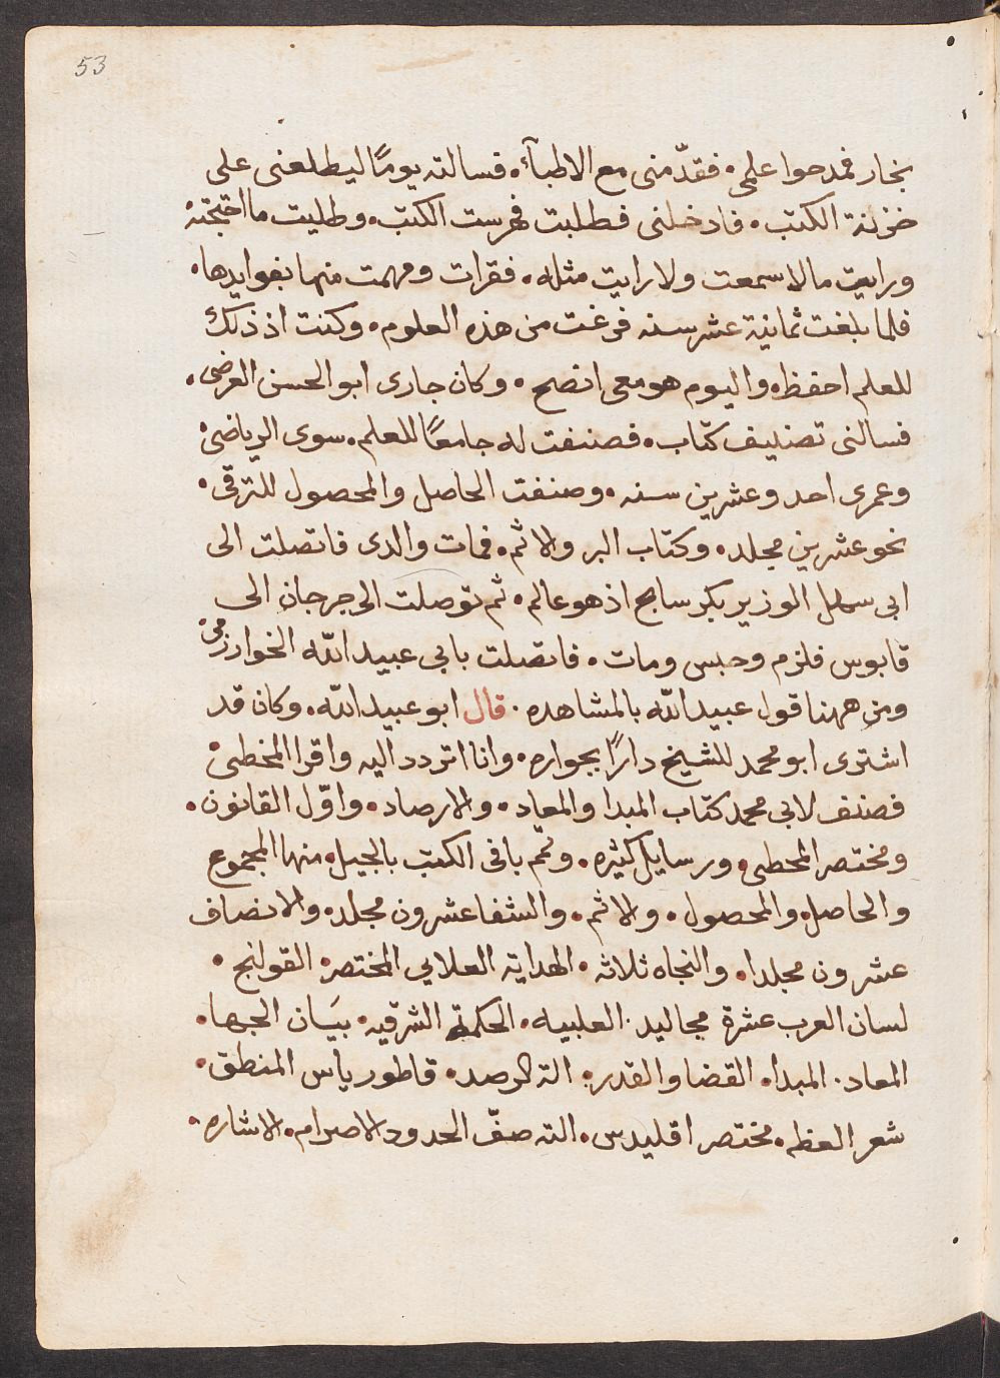 53
بخار فمدحوا علمي. فقدّمني مع الاطبآء. فسالته يومًا ليطلعني على
خزنة الكتب. فادخلني فطلبت فهرست الكتب. وطلبت ما احتجته
ورايت ما لا سمعت ولا رايت مثله. فقرات وفهمت منها بفوايدها.
فلما بلغت ثمانية عشر سنه فرغت من هذه العلوم. وكنت اذ ذلك
للعلم احفظ. واليوم هو معي انضج. وكان جارى ابو الحسن العرضى.
فسالنى تصنيف كتاب. فصنفت له جامعًا للعلم. سوى الرياضى.
وعمرى احد وعشرين سنه. وصنفت الحاصل والمحصول للترقى.
نحو عشرين مجلد. وكتاب البر والاثم. فمات والدى فاتصلت الى
ابى سهل الوزير بكر سابح اذ هو عالم. ثم توصلت الى جرجان الى
قابوس فلزم وحبس ومات. فاتصلت بابي عبيد الله الخوارزمى.
ومن ههنا قول عبيد الله بالمشاهده. قال ابو عبيد الله. وكان قد
اشترى ابو محمد للشيخ دارًا بجواره. وانا اتردد اليه واقرا المخطى.
فصنف لابي محمد كتاب المبدا والمعاد. والارصاد. واوّل القانون.
ومختصر المحطى. ورسايل كثيره. وتمم باقى الكتب بالجبل. منها المجموع
والحاصل. والمحصول. والاثم. والشفا عشرون مجلد. والانصاف
عشرون مجلدا. والنجاه ثلاثه. الهداية العلايي المختصر. القولنج.
لسان العرب عشرة مجاليد. العلبيه. الحكمة الشرقيه. بيَان الجها.
المعاد. المبدا. القضا والقدر. الة الرصد. قاطورياس المنطق.
شعر العظه. مختصر اقليدس. التصفّ الحدود الاصرام. الاشاره.